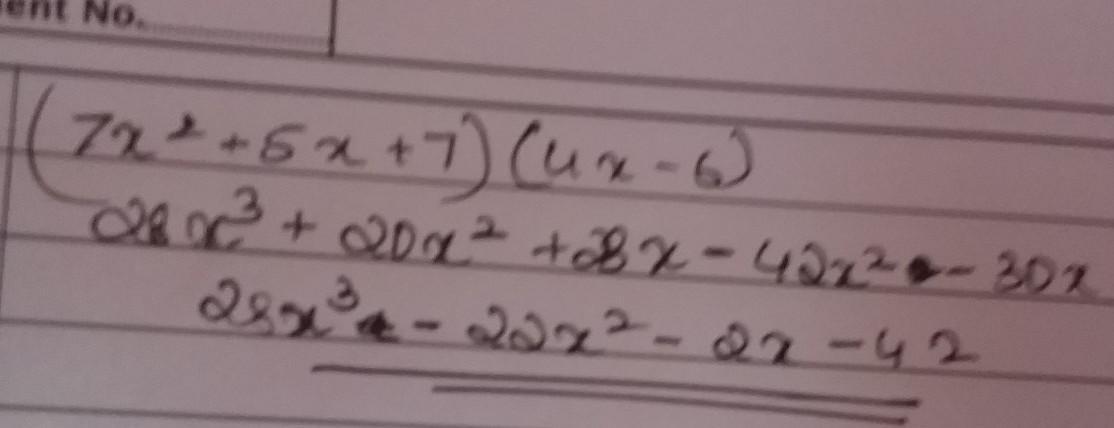 ent No.
(7x² + 5x + 7)(4x - 6)
28x³ + 20x² + 28x - 42x² - 30x
28x³ - 22x² - 2x - 42